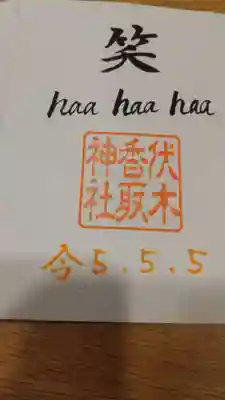 笑
haa haa haa
伏木
香取
神社
今5.5.5